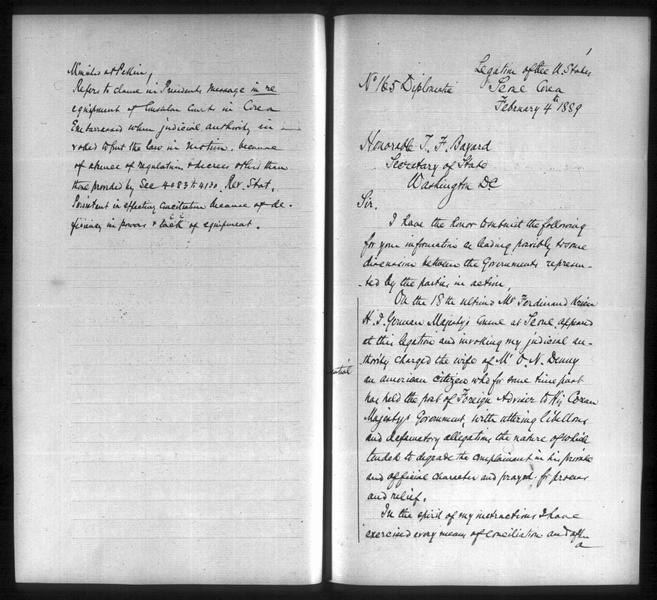 Minister at Pekin,
Refers to clause in Presidents message in re
equipment of Consular Courts in Corea
Embarrassed when judicial authority in-
voked to put the law in motion, because
of absence of regulations & decrees other than
those provided by Sec 4083 to 4130. Rev. Stat.
Persistent in effecting conciliation because of de-
ficiency in powers & lack of equipment.
1
Legation of the U. States
Seoul Corea
No 165 Diplomatic
February 4th 1889
Honorable T. F. Bayard
Secretary of State
Washington DC
Sir.
I have the honor to submit the following
for your information as leading possibly to some
discussion between the Governments represen-
ted by the parties in action.
On the 18th ultimo Mr Ferdinand Krien
H. I. German Majesty's Consul at Seoul appeared
at this legation and invoking my judicial au-
thority charged the wife of Mr O. N. Denny
an american citizen who for some time past
has held the post of Foreign Adviser to His Corean
Majesty's Government, with uttering libellous
and defamatory allegations the nature of which
tended to degrade the complainant in his private
and official character and prayed for process
and relief.
In the spirit of my instructions I have
exercised every means of conciliation and after
a